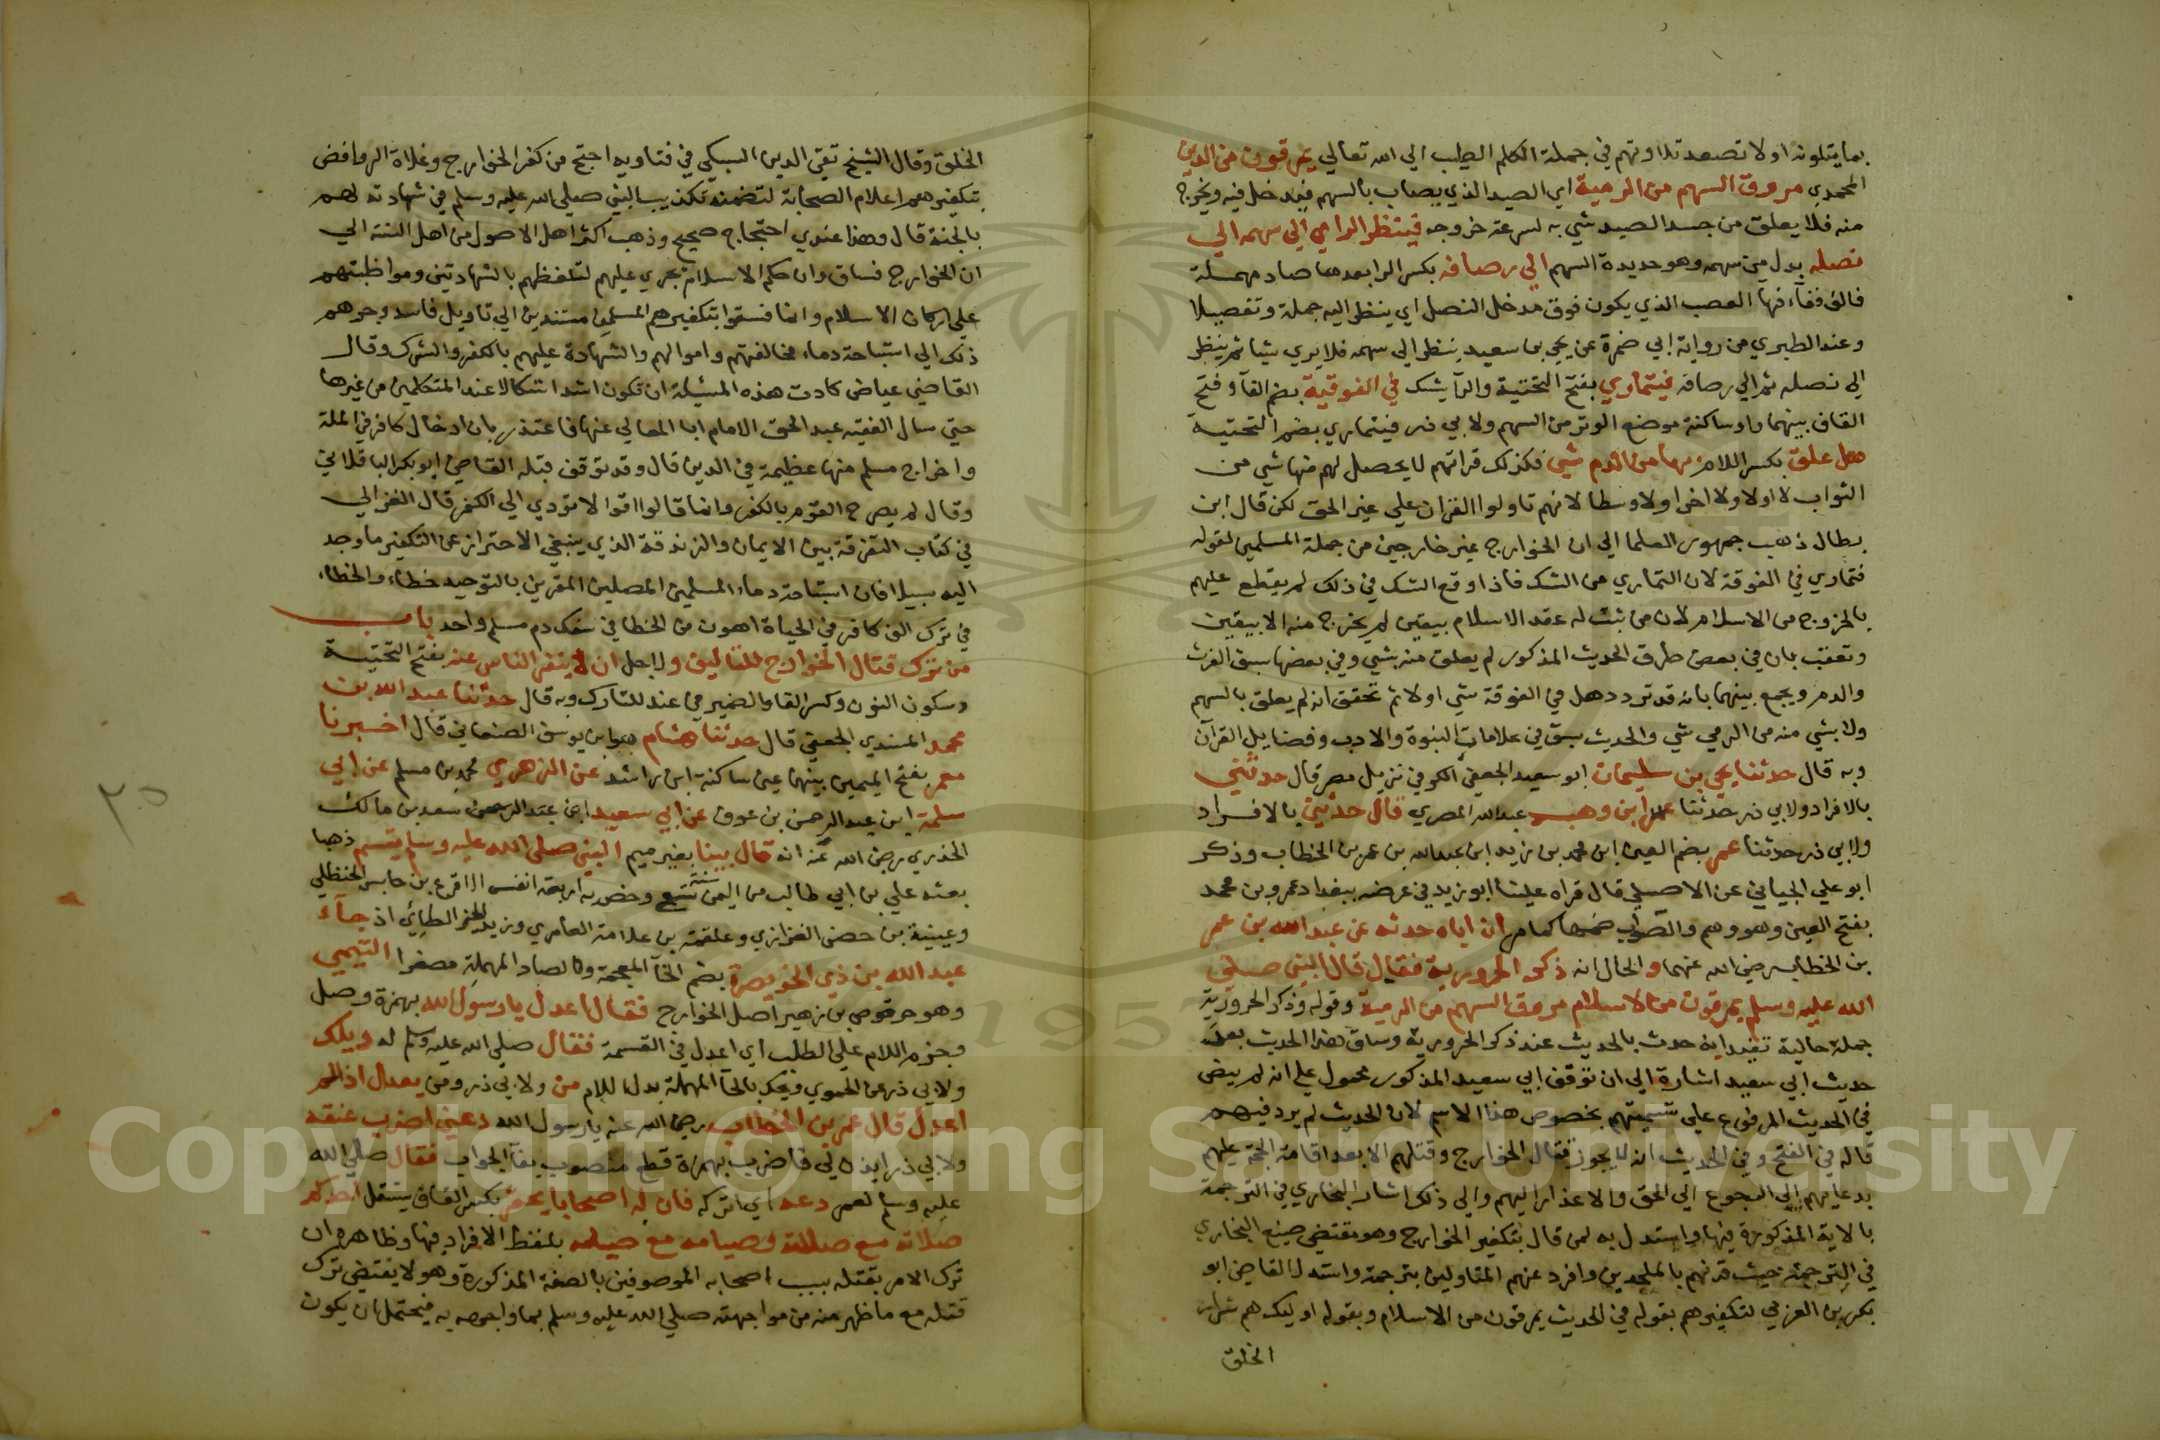 بما يتلونه اولا تصعد تلاوتهم في جملة الكلم الطيب الي الله تعالي يمرقون من الدين
المحمدي مروق السهم من الرمية اي الصيد الذي يصاب بالسهم فيدخل فيه ويخرج
منه فلا يعلق من جسد الصيد شي به لسرعة خروجه فينظر الرامي الي سهمه الي
نصله بدل من سهمه وهو حديدة السهم الي رصافه بكسر الرا بعدها صاد مهملة
فالف ففاء فها العصب الذي يكون فوق مدخل النصل اي ينظر اليه جملة وتفصيلا
وعند الطبري من رواية ابي ضمرة عن يحي بن سعيد ينظر الي سهمه فلا يري شيا ثم ينظر
الي نصله ثم الي رصافه فيتماري بفتح التحتية والرآ يشك في الفوقية بضم الفآ وفتح
القاف بينهما واو ساكنة موضع الوتر من السهم ولابي ذر فيتماري بضم التحتية
هل علق بكسر اللام بها من الدم شي فكذلك قراتهم لا يحصل لهم منها شي من
الثواب لا اولا ولا اخرا ولا وسطا لانهم تاولوا القران علي غير الحق لكن قال ابن
بطال ذهب جمهور العلما الي ان الخوارج غير خارجين من جملة المسلمين لقوله
فتماري في الفوقة لان التماري من الشك فاذا وقع الشك في ذلك لم يقطع عليهم
بالخروج من الاسلام لان من ثبت له عقد الاسلام بيقين لم يخرج منه الا بيقين
وتعقب بان في بعض طرق الحديث المذكور لم يعلق منه بشي وفي بعضها سبق الفرث
والدم ويجمع بينهما بانه قد تردد هل في الفوقة شي اولا ثم تحقق انه لم يعلق بالسهم
ولا بشي منه من الرمي شي والحديث سبق في علامات النبوة والادب وفضايل القرآن
وبه قال حدثنا يحي بن سليمان ابو سعيد الجعفي الكوفي نزيل مصر قال حدثني
بالافراد ولابي ذر حدثنا ابن وهب عبد الله المصري قال حدثني بالافراد
ولابي ذر حدثنا عمر بضم العين ابن محمد بن زيد ابن عبد الله بن عمر بن الخطاب وذكر
ابو علي الجياني عن الاصيلي قال قراه علينا ابو زيد في عرضه ببغداد عمرو بن محمد
بفتح العين وهو وهم والصواب ضمها كما مر ان اباه حدثه عن عبد الله بن عمر
بن الخطاب رضي الله عنهما والحال انه ذكر الحرورية فقال قال النبي صلي
الله عليه وسلم يمرقون من الاسلام مروق السهم من الرمية وقوله وذكر الحرورية
جملة حالية تفيد انه حدث بالحديث عند ذكر الحرورية وساق هذا الحديث بعد
حديث ابي سعيد اشارة الي ان توقف ابي سعيد المذكور محمول علي انه لم ينص
في الحديث المرفوع علي تسميتهم بخصوص هذا الاسم لان الحديث لم يرد فيهم
قاله في الفتح وفي الحديث انه لا يجوز قتال الخوارج وقتلهم الا بعد اقامة الحجة عليهم
بدعايهم الي الرجوع الي الحق والاعذار اليهم والي ذلك اشار البخاري في الترجمة
بالاية المذكورة فيها واستدل به لمن قال بتكفير الخوارج وهو مقتضي صنيع البخاري
في الترجمة حيث قرنهم بالملحدين وافرد عنهم المتاولين بترجمة واستدل القاضي ابو
بكر بن العربي لتكفيرهم بقوله في الحديث يمرقون من الاسلام وبقوله اوليك هم شرار
الخلق
الخلق وقال الشيخ تقي الدين السبكي في فتاويه احتج من كفر الخوارج وغلاة الروافض
بتكفيرهم اعلام الصحابة لتضمنه تكذيب النبي صلي الله عليه وسلم في شهادته لهم
بالجنة قال وهذا عندي احتجاج صحيح وذهب اكثر اهل الاصول من اهل السنة الي
ان الخوارج فساق وان حكم الاسلام يجري عليهم لتلفظهم بالشهادتين ومواظبتهم
علي اركان الاسلام وانما فسقوا بتكفيرهم المسلمين مستندين الي تاويل فاسد وجرهم
ذلك الي استباحة دماء مخالفتهم واموالهم والشهادة عليهم بالكفر والشرك وقال
القاضي عياض كادت هذه المسئلة ان تكون اشد اشكالا عند المتكلمين من غيرها
حتي سال الفقيه عبد الحق الامام ابا المعالي عنها فاعتذر بان ادخال كافر في الملة
واخراج مسلم منها عظيمة في الدين قال وقد توقف قبله القاضي ابو بكر الباقلاني
وقال لم يصرح القوم بالكفر وانما قالوا اقوالا تؤدي الي الكفر قال الغزالي
في كتاب التفرقة بين الايمان والزندقة الذي ينبغي الاحتراز عن التكفير ما وجد
اليه سبيلا فان استباحة دماء المسلمين المصلين المقرين بالتوحيد خطاء والخطاء
في ترك الف كافر في الحياة اهون من الخطا في سفك دم مسلم واحد باب
من ترك قتال الخوارج للتاليف ولاجل ان لا ينفر الناس عنه بفتح التحتية
وسكون النون وكسر الفا والضمير في عنه للتارك وبه قال حدثنا عبد الله بن
محمد المسندي الجعفي قال حدثنا هشام هو ابن يوسف الصنعاني قال اخبرنا
معمر بفتح الميمين بينهما عين ساكنة ابن راشد عن الزهري محمد بن مسلم عن ابي
سلمة ابن عبد الرحمن بن عوف عن ابي سعيد سعد بن مالك
الخدري رضي الله عنه انه قال بينا بغير ميم النبي صلي الله عليه وسلم يقسم ذهبا
بعثه علي بن ابي طالب من اليمن سنة تسع وخص به اربعة انفس الاقرع بن حابس الحنظلي
وعيينة بن حصن الفزاري وعلقمة بن علاثة العامري وزيد الخير الطائي اذ جآء
عبد الله بن ذي الخويصرة بضم الخآ المعجمة وبالصاد المهملة مصغرا التيمي
وهو حرقوص بن زهير اصل الخوارج فقال اعدل يا رسول الله بهمزة وصل
وجزم اللام علي الطلب اي اعدل في القسمة فقال صلي الله عليه وسلم له ويلك
ولابي ذر عن الحموي ويحك بالحآ المهملة بدل اللام من ولابي ذر ومن يعدل اذا لم
اعدل قال عمر بن الخطاب رضي الله عنه يا رسول الله دعني اضرب عنقه
ولابي ذر ايذن لي فاضرب بهمزة قطع منصوب بفآ الجواب فقال صلي الله
عليه وسلم لعمر دعه اي اتركه فان له اصحابا يحقر بكسر القاف يستقل احدكم
صلاته مع صلاته وصيامه مع صيامه بلفظ الافراد فيها وظاهره ان
ترك الامر بقتله بسبب اصحابه الموصوفين بالصفة المذكورة وهو لا يقتضي ترك
قتله مع ما ظهر منه من مواجهته صلي الله عليه وسلم بما واجهه به فيحتمل ان يكون
٣٥
Copyright © King Saud University
1957